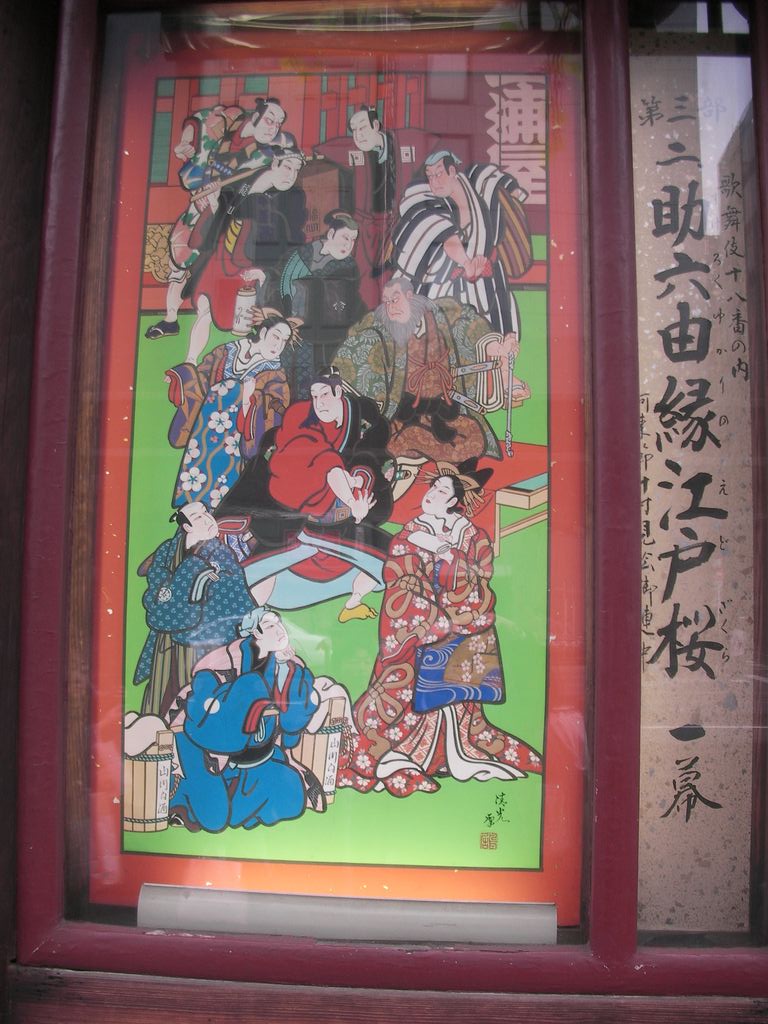 第三部
歌舞伎十八番の内
二 助六由縁江戸桜 一幕
ろくゆかりのえどざくら
河東節十寸見会御連中
浦屋
山川白酒
山川白酒
清光筆